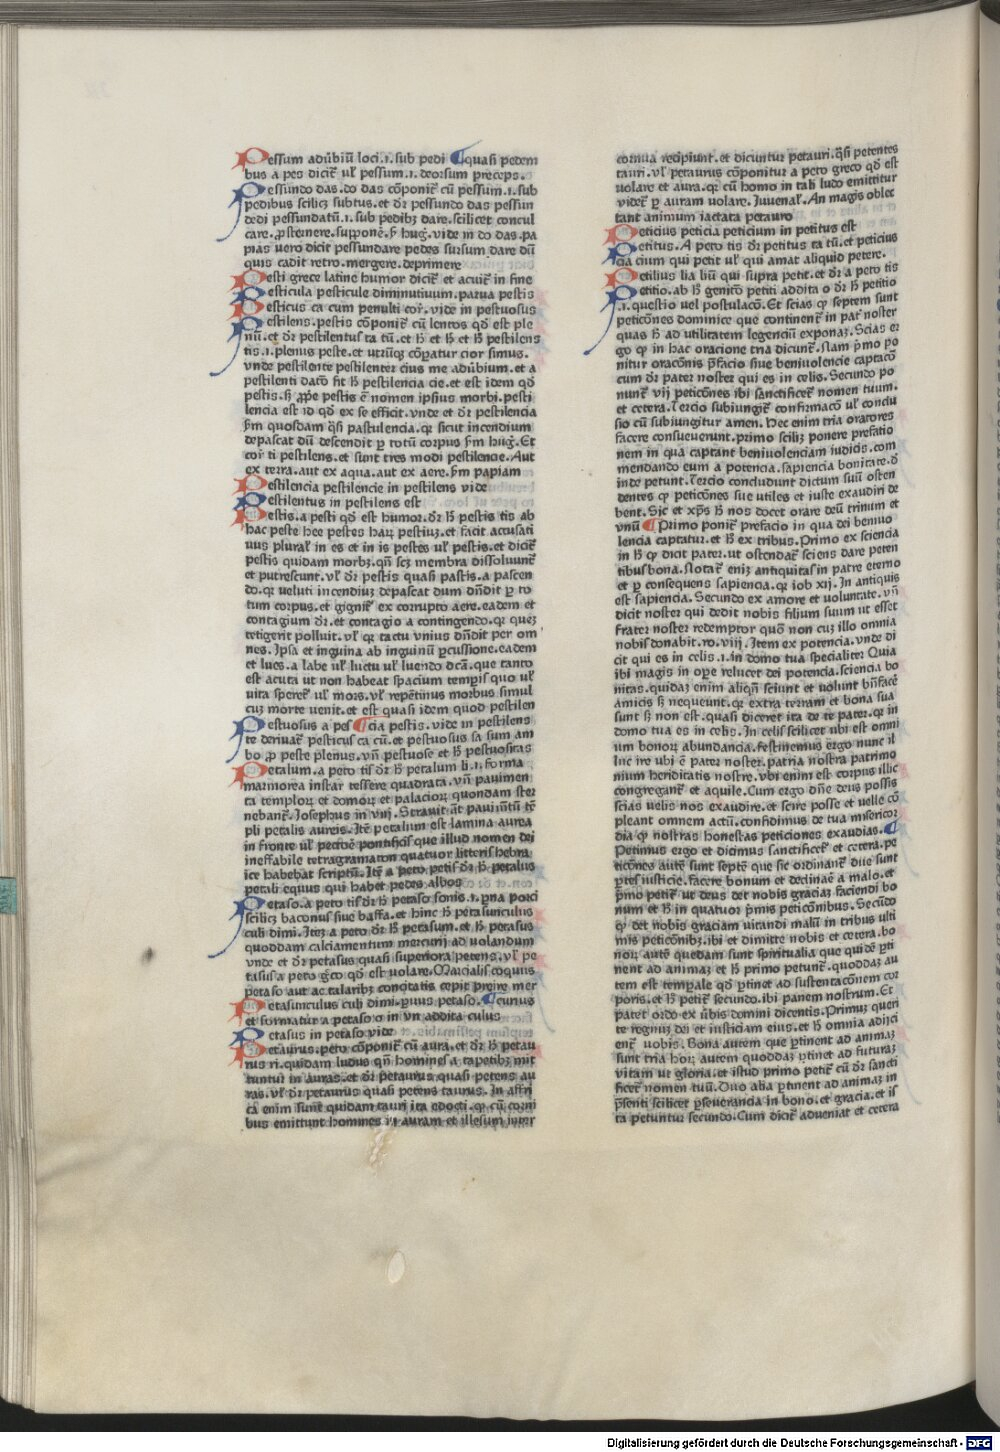 Pessum adũbiũ loci.i.sub pedi ¶quasi pedem
bus a pes dicit᷑ ul᷑ pessum.i.deorsum preceps.
Pessundo das.do das cõponit᷑ cũ pessum.i.sub
pedibus scilicꝫ subtus.et dr̃ pessundo das pessun
dedi pessundatũ.i.sub pedibꝫ dare.scilicet concul
care.ꝓsternere.supponẽ.ẜm hug.vide in do das.pa
pias vero dicit pessundare pedes sursum dare dũ
quis cadit retro.mergere.deprimere
Pesti grece latine humor dicit᷑ et acuit᷑ in fine
Pesticula pesticule diminutiuum.parua pestis
Pesticus ca cum penulti cor᷑.vide in pestuosus
Pestilens.pestis cõponit᷑ cũ lentos qd̃ est ple
nũ.et dr̃ pestilentus ta tũ.et h̃ et h̃ et h̃ pestilens
tis.i.plenus peste.et utrũqꝫ cõpatur cior simus.
vnde pestilente pestilenter cius me adũbium.et a
pestilenti datõ fit h̃ pestilencia cie.et est idem qd̃
pestis.sꝫ ꝓpe pestis ẽ nomen ipsius morbi.pesti
lencia est id qd̃ ex se efficit.vnde et dr̃ pestilencia
ẜm quosdam q̃si pastulencia.qꝛ sicut incendium
depascat dũ descendit ꝑ totũ corpus ẜm hug̃.Et
cor᷑ ti pestilens.et sunt tres modi pestilencie.Aut
ex terra.aut ex aqua.aut ex aere.ẜm papiam
Pestilencia pestilencie in pestilens vide
Pestilentus in pestilens est
Pestis.a pesti qd̃ est humor.dr̃ h̃ pestis tis ab
hac peste hee pestes haꝝ pestiuꝫ.et facit accusati
uus plural᷑ in es et in is pestes ul᷑ pestis.et dicit᷑
pestis quidam morbꝫ.qñ scꝫ membra dissoluunt᷑
et putrescunt.vl᷑ dr̃ pestis quasi pastis.a pascen
do.qꝛ veluti incendiuꝫ depascat dum dñdit ꝑ to
tum corpus.et gignit᷑ ex corrupto aere.eadem et
contagium dr̃.et contagio a contingendo.qꝛ queꝫ
tetigerit polluit.vl᷑ qꝛ tactu vnius dñdit per om
nes.Ipsa et inguina ab inguinũ ꝑcussione.eadem
et lues.a labe ul᷑ luctu ul᷑ luendo dc̃a.que tanto
est acuta ut non habeat spacium tempis quo ul᷑
vita speret᷑ ul᷑ mors.vl᷑ repẽtinus morbus simul
cuꝫ morte venit.et est quasi idem quod pestilen
Pestuosus a pes ¶cia pestis.vide in pestilens
te deriuat᷑ pesticus ca cũ.et pestuosus sa sum am
bo ꝓ peste plenus.vñ pestuose et h̃ pestuositas
Petalum.a peto tis dr̃ h̃ petalum li.i.forma
marmorea instar tessere quadrata.vñ pauimen
ta temploꝝ et domoꝝ et palacioꝝ quondam ster
nebant᷑.Josephus in viij.Strauit aũt pauimẽtũ tẽ
pli petalis aureis.Itẽ petalum est lamina aurea
in fronte ul᷑ pectore pontificis que illud nomen dei
ineffabile tetragramaton quatuor litteris hebra
ice habebat scriptũ.Itẽ a peto petis dr̃ h̃ petalus
petali equus qui habet pedes albos
Petaso.a peto tis dr̃ h̃ petaso sonis.i.ꝑna porci
scilicꝫ baconus siue baffa.et hinc h̃ petasunculus
culi dimi.Iteꝫ a peto dr̃ h̃ petasum.et h̃ petasus
quoddam calciamentum mercurij ad volandum
vnde et dr̃ petasus quasi superiora petens.vl᷑ pe
tasus a pero gr̃co qd̃ est volare.Marcialis coquus
petaso aut ac talaribꝫ concitatis cepit preire mer
Petasunculus culi dimi.ꝑuus petaso. ¶curius
et formatur a petaso o in vn addita culus
Petasus in petaso vide
Petaurus.peto cõponit᷑ cũ aura.et dr̃ h̃ petau
rus ri.quidam ludus qñ homines a tapetibꝫ mit
tuntur in auras.et dr̃ petaurus quasi petens au
ras.vl᷑ dr̃ petaurus quasi petens taurus.In affri
ca enim sunt᷑ quidam tauri ita edocti.qꝙ cũ corni
bus emittunt homines in auram et illesum inter
cornua recipiunt.et dicuntur petauri.q̃si petentes
tauri.vl᷑ petaurus cõponitur a pero greco qd̃ est
uolare et aura.qꝛ cũ homo in tali ludo emittitur
videt᷑ ꝑ auram uolare.Juuenal᷑.An magis oblec
tant animum iactata petauro
Peticius peticia peticium in petitus est
Petitus.A peto tis dr̃ petitus ta tũ.et peticius
cia cium qui petit ul᷑ qui amat aliquid petere.
Petilius lia liũ qui supra petit.et dr̃ a peto tis
Petitio.ab h̃ genitõ petiti addita o dr̃ h̃ petitio
.i.questio uel postulacõ.Et scias qꝙ septem sunt
peticões dominice que continent᷑ in pat᷑ noster
quas h̃ ad utilitatem legenciũ exponaꝫ.Scias er
go qꝙ in hac oracione tria dicunt᷑.Nam p̃mo po
nitur oracõnis p̃facio siue beniuolencie captacõ
cum dr̃ pater noster qui es in celis.Secundo po
nunt᷑ vij peticões ibi sanctificet᷑ nomen tuum.
et cetera.Tercio subiungit᷑ confirmacõ ul᷑ conclu
sio cũ subiungitur amen.Hec enim tria oratores
facere consueuerunt.primo scilicꝫ ponere prefatio
nem in qua captant beniuolenciam iudicis.com
mendando eum a potencia.sapiencia bonitate.d̃
inde petunt.Tercio concludunt dictum suũ osten
dentes qꝙ peticões sue utiles et iuste exaudiri de
bent.Sic et xp̃s h̃ nos docet orare deũ trinum et
vnũ ¶Primo ponit᷑ prefacio in qua dei beniuo
lencia captatur.et h̃ ex tribus.Primo ex sciencia
in h̃ qꝙ dicit pater.ut ostendat᷑ sciens dare peten
tibus bona.Notat᷑ enīꝫ antiquitas in patre eterno
et ꝑ consequens sapiencia.qꝛ iob xij.In antiquis
est sapiencia.Secundo ex amore et voluntate.vñ
dicit noster qui dedit nobis filium suum ut esset
frater noster redemptor quõ non cuꝫ illo omnia
nobis donabit.ro.viij.Item ex potencia.vnde di
cit qui es in celis.i.in domo tua specialiter Quia
ibi magis in oꝑe relucet dei potencia.sciencia bo
nitas.quidaꝫ enim aliqñ sciunt et volunt bñfacẽ
amicis sꝫ nequeunt.qꝛ extra terram et bona sua
sunt sꝫ non est.quasi diceret ita de te pater.qꝛ in
domo tua es in celis.In celis scilicet ubi est omni
um bonoꝝ abundancia.festinemus ergo nunc il
luc ire ubi ẽ pater noster.patria nostra patrimo
nium hereditatis nostre.vbi enim est corpus illic
congregant᷑ et aquile.Cum ergo dñe deus possis
scias velis nos exaudire.et scire posse et velle cõ
pleant omnem actũ.confidimus de tua misericor
dia qꝙ nostras honestas peticiones exaudias. ¶
Petimus ergo et dicimus sanctificet᷑ et cetera.pe
ticões autẽ sunt septẽ que sic ordinant᷑ due sunt
ꝑtes iusticie.facere bonum et declinãe a malo.et
p̃mo petit᷑ ut deus det nobis graciaꝫ faciendi bo
num et h̃ in quatuor p̃mis peticõnibus.Secũdo
qꝙ det nobis graciam uitandi malũ in tribus ulti
mis peticõnibꝫ.ibi et dimitte nobis et cetera.bo
noꝝ autẽ quedam sunt spiritualia que quidẽ ꝑti
nent ad animaꝫ et h̃ primo petunt᷑.quoddaꝫ au
tem est tempale qd̃ ꝑtinet ad sustentacõnem cor
poris.et h̃ petit᷑ secundo.ibi panem nostrum.Et
patet ordo ex ũbis domini dicentis.Primuꝫ queri
te regnuꝫ dei et iusticiam eius.et h̃ omnia adijci
ent᷑ uobis.Bona autem que ꝑtinent ad animaꝫ
sunt tria hoꝝ autem quoddaꝫ ꝑtinet ad futuraꝫ
vitam ut gloria.et istud primo petit᷑ cũ dr̃ sancti
ficet᷑ nomen tuũ.Duo alia ꝑtinent ad animaꝫ in
p̃senti scilicet ꝑseuerancia in bono.et gracia.et is
ta petuntur secundo.Cum dicit᷑ adueniat et cetera
Digitalisierung gefördert durch die Deutsche Forschungsgemeinschaft - DFG